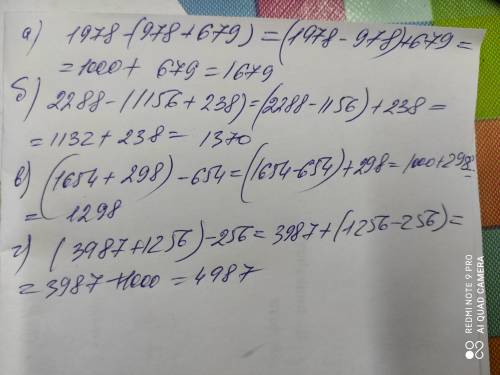 а) 1978-(978+679)=(1978-978)+679=
=1000+ 679=1679
б) 2288-(1156+238)=(2288-1156)+238=
=1132+238= 1370
в) (1654+298)-654=(1654-654)+298=1000+298
= 1298
г) (3987+1256)-256=3987+(1256-256)=
=3987+1000=4987
REDMI NOTE 9 PRO
AI QUAD CAMERA